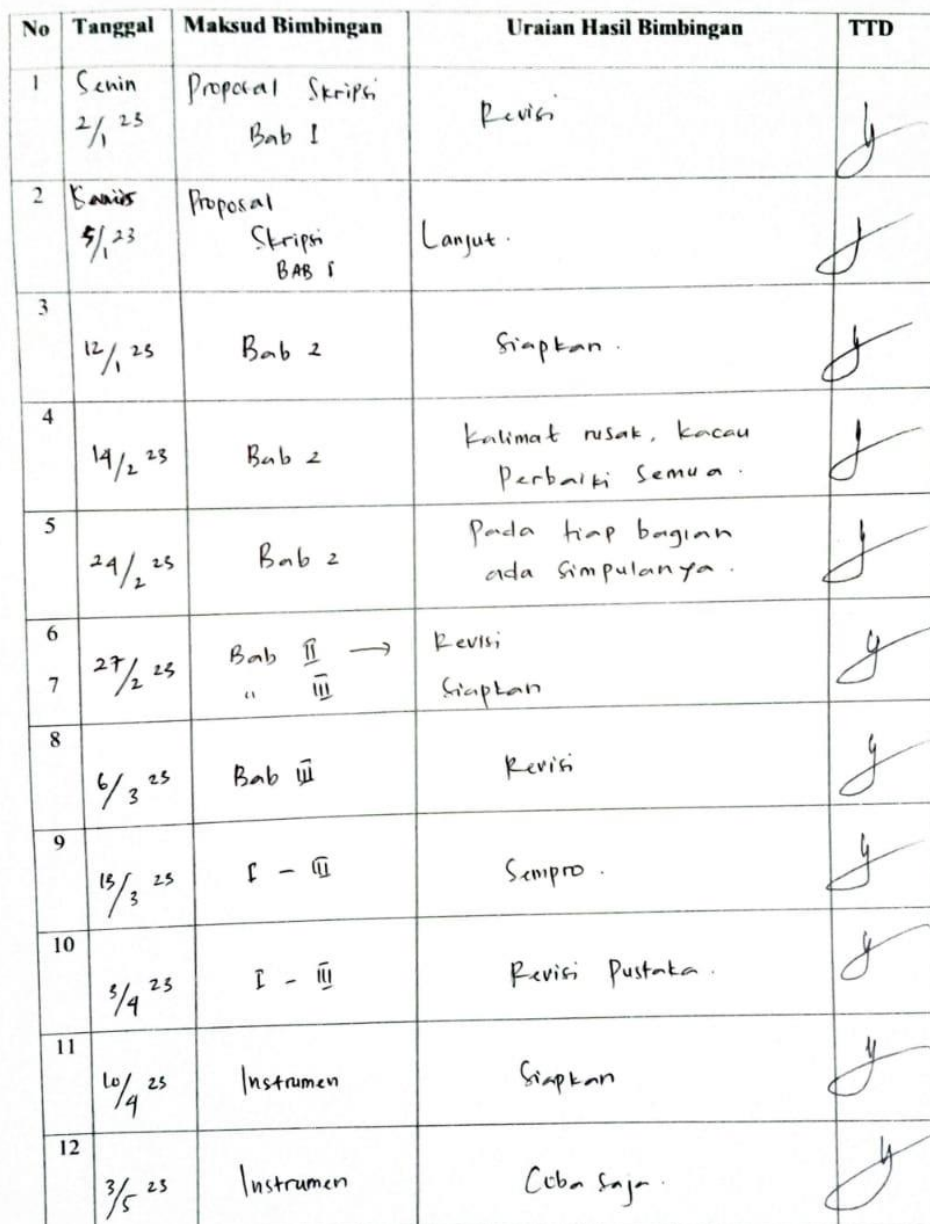 No Tanggal Maksud Bimbingan Uraian Hasil Bimbingan TTD
1 Senin Proposal Skripsi Revisi
2/1 23 Bab I
2 Kamis Proposal
5/1 23 Skripsi Lanjut.
BAB I
3
12/1 23 Bab 2 Siapkan.
4
14/2 23 Bab 2 Kalimat rusak, kacau
Perbaiki Semua.
5
24/2 23 Bab 2 Pada tiap bagian
ada Simpulanya.
6 27/2 23 Bab II → Revisi
7 " III Siapkan
8
6/3 23 Bab III Revisi
9
13/3 23 I - III Sempro.
10
3/4 23 I - III Revisi Pustaka.
11
10/4 23 Instrumen Siapkan
12
3/5 23 Instrumen Coba Saja.